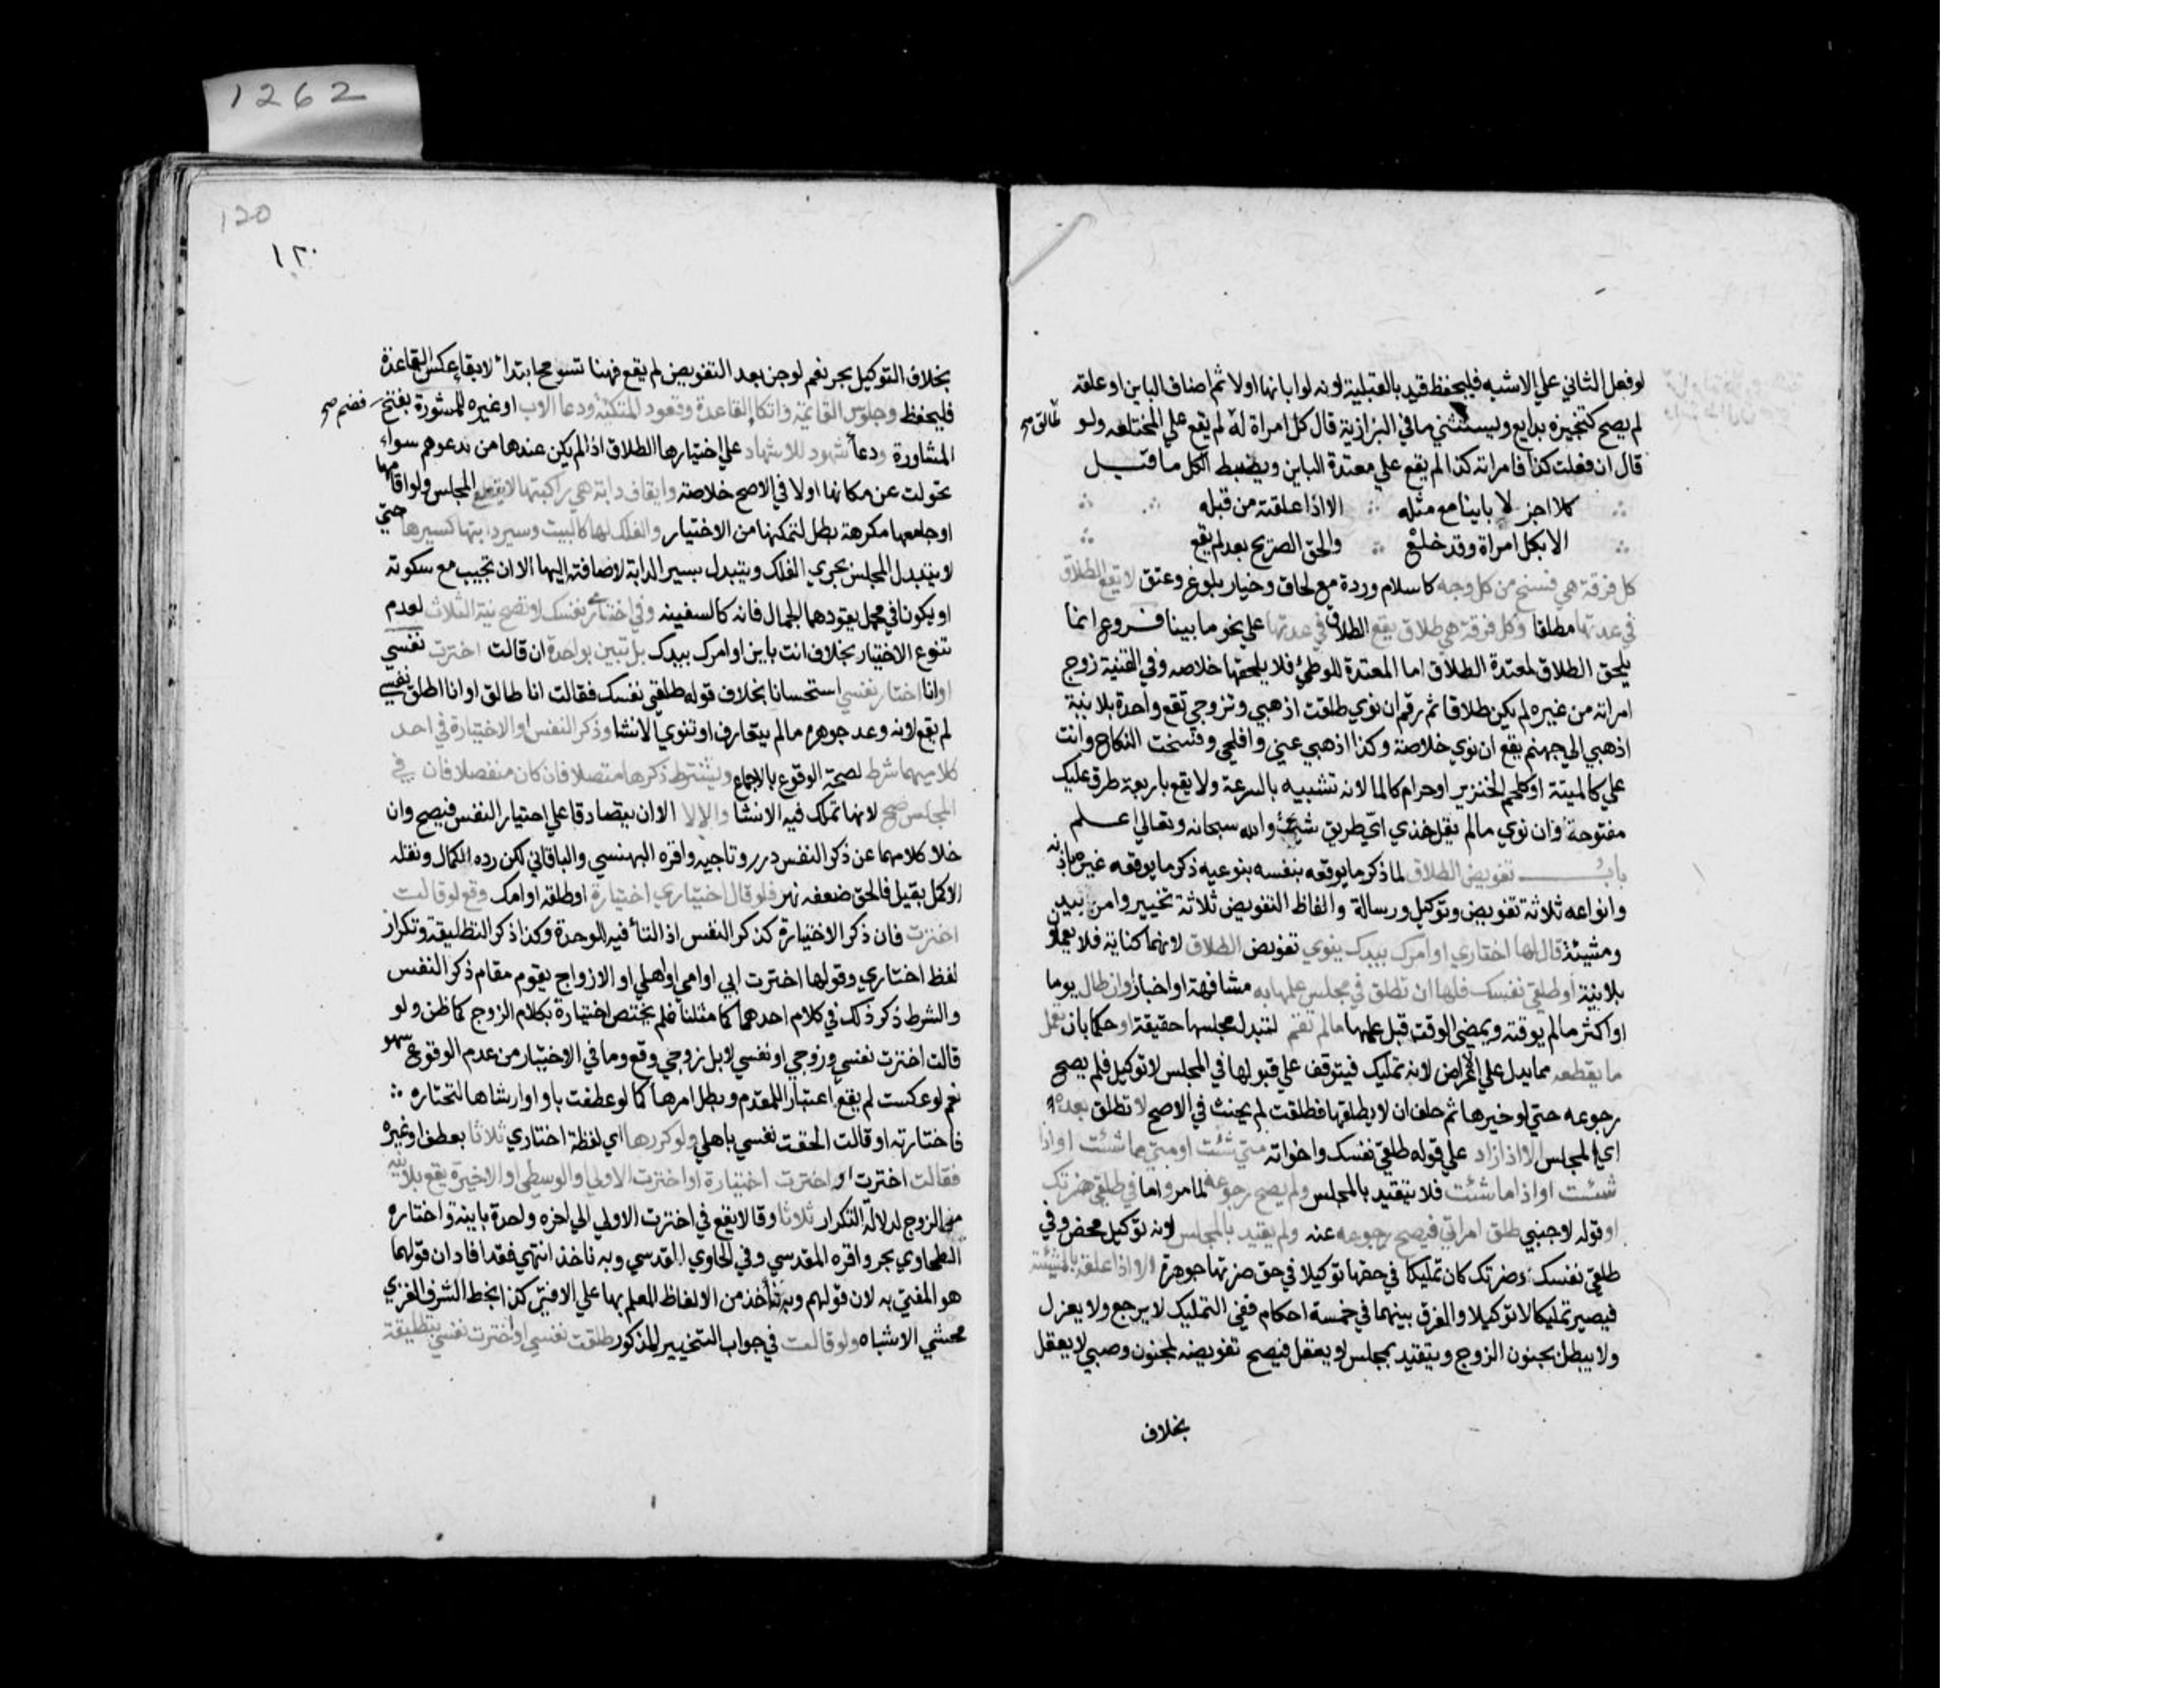 1262
لو فعل الثاني علي الاشبه فليحفظ قيد بالقبلية لانه لو ابانها اولا ثم اضاف الباين او علقه
لم يصح كتنجيزه بدايع ويستثني ما في البزازية قال كل امراة له لم يقع علي المختلعه ولو
طالق صح
قال ان فعلت كذا فامراته كذا لم يقع علي معتدة الباين ويضبط الكل ما قيل
كلا اجز لا باينا مع مثله الا اذا علقته من قبله
الا بكل امراة وقد خلع والحق الصريح بعد لم يقع
كل فرقة هي فسخ من كل وجه كاسلام وردة مع لحاق وخيار بلوغ وعتق لا يقع الطلاق
في عدتها مطلقا وكل فرقة هي طلاق يقع الطلاق في عدتها علي نحو ما بينا فروع انما
يلحق الطلاق لمعتدة الطلاق اما المعتدة للوطئ فلا يلحقها خلاصه وفي القنية زوج
امراته من غيره لم يكن طلاقا ثم رقم ان نوي طلقت اذهبي وتزوجي تقع واحدة بلا نية
اذهبي الي جهنم يقع ان نوي خلاصة وكذا اذهبي عني وافلحي وفسخت النكاح وانت
علي كالميتة او كلحم الخنزير او حرام كالما لانه تشبيه بالسرعة ولا يقع باربعة طرق عليك
مفتوحة وان نوي ما لم يقل خذي اي طريق شئت والله سبحانه وتعالي اعلم
باب تفويض الطلاق لما ذكر ما يوقعه بنفسه بنوعيه ذكر ما يوقعه غيره باذنه
وانواعه ثلاثة تفويض وتوكيل ورسالة والفاظ التفويض ثلاثة تخيير وامر بيد
ومشيئة قال لها اختاري او امرك بيدك ينوي تفويض الطلاق لانهما كناية فلا يعملو
بلا نية او طلقي نفسك فلها ان تطلق في مجلس علمها به مشافهة او اخبارا وان طال يوما
او اكثر ما لم يوقته ويمضي الوقت قبل علمها ما لم تقم لتبدل مجلسها حقيقة او حكما بان تعمل
ما يقطعه مما يدل علي الاعراض لانه تمليك فيتوقف علي قبولها في المجلس لا توكيل فلم يصح
رجوعه حتي لو خيرها ثم حلف ان لا يطلقها فطلقت لم يحنث في الاصح لا تطلق بعده
اي المجلس الا اذا زاد علي قوله طلقي نفسك واخواته متي شئت او متي ما شئت او اذا
شئت او اذا ما شئت فلا يتقيد بالمجلس ولم يصح رجوعه لما مر واما في طلقي ضرتك
او قوله لاجنبي طلق امراتي فيصح رجوعه عنه ولم يقيد بالمجلس لانه توكيل محض وفي
طلقي نفسك وضرتك كان تمليكا في حقها توكيلا في حق ضرتها جوهرة الا اذا علقه بالمشيئة
فيصير تمليكا لا توكيلا والفرق بينهما في خمسة احكام ففي التمليك لا يرجع ولا يعزل
ولا يبطل بجنون الزوج ويتقيد بمجلس لا يعقل فيصح تفويضه لمجنون وصبي لا يعقل
بخلاف
120
١٢٠
بخلاف التوكيل بحر نعم لو جن بعد التفويض لم يقع فهنا تسومح ابتداء لا بقاء عكس القاعدة
فليحفظ وجلوس القائمة واتكاء القاعدة وقعود المتكئة ودعا الاب او غيره للمشورة بفتح فضم صح
المشاورة ودعا شهود للاشهاد علي اختيارها الطلاق اذا لم يكن عندها من يدعوهم سواء
تحولت عن مكانها او لا في الاصح خلاصة وايقاف دابة هي راكبتها لا يقطع المجلس ولو اقامها
او جامعها مكرهة بطل لتمكنها من الاختيار والفلك لها كالبيت وسير دابتها كسيرها حتي
لا يتبدل المجلس بجري الفلك ويتبدل بسير الدابة لاضافته اليها الا ان تجيب مع سكوته
او يكونا في محمل يقودهما الجمال فانه كالسفينه وفي اختاري نفسك لا تصح نية الثلاث لعدم
تنوع الاختيار بخلاف انت باين او امرك بيدك بل تبين بواحدة ان قالت اخترت نفسي
او انا اختار نفسي استحسانا بخلاف قوله طلقي نفسك فقالت انا طالق او انا اطلق نفسي
لم يقع لانه وعد جوهره ما لم يتعارف او تنوي الانشا وذكر النفس او الاختيارة في احد
كلاميهما شرط لصحة الوقوع بالاجماع ويشترط ذكرها متصلا فان كان منفصلا فان في
المجلس صح لانها تملك فيه الانشا والا لا الا ان يتصادقا علي اختيار النفس فيصح وان
خلا كلامهما عن ذكر النفس درر وتاجيه واقره البهنسي والباقاني لكن رده الكمال ونقله
الاكمل بقيل فالحق ضعفه نهر فلو قال اختياري اختيارة او طلقة او امك وقع لو قالت
اخترت فان ذكر الاختيارة كذكر النفس اذ التا فيه للوحدة وكذا ذكر التطليقة وتكرار
لفظ اختاري وقولها اخترت ابي او امي او اهلي او الازواج يقوم مقام ذكر النفس
والشرط ذكر ذلك في كلام احدهما كما مثلنا فلم يختص اختيارة بكلام الزوج كما ظن ولو
قالت اخترت نفسي وزوجي او نفسي لا بل زوجي وقع وما في الاختيار من عدم الوقوع سهو
نعم لو عكست لم يقع اعتبارا للمقدم وبطل امرها كما لو عطفت باو او ارشاها لتختاره
فاختارته او قالت الحقت نفسي باهلي ولو كررها اي لفظة اختاري ثلاثا بعطف او غيره
فقالت اخترت او اخترت اختيارة او اخترت الاولي او الوسطي او الاخيرة يقع بلا نية
من الزوج لدلالة التكرار ثلاثا وقالا يقع في اخترت الاولي الي اخره واحدة باينة واختاره
الطحاوي بحر واقره المقدسي وفي الحاوي القدسي وبه ناخذ انتهي فقد افاد ان قولهما
هو المفتي به لان قولهم وبه ناخذ من الالفاظ المعلم بها علي الافتي كذا بخط الشرف الغزي
محشي الاشباه ولو قالت في جواب التخيير المذكور طلقت نفسي او اخترت نفسي بتطليقة